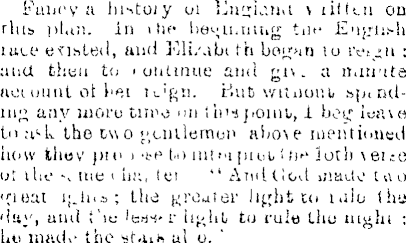 Fancy a history of England written on
this plan. In the beginning the English
race existed, and Elizabeth began to reign;
and then to continue and give a minute
account of her reign. But without spend-
ing any more time on this point, I beg leave
to ask the two gentlemen above mentioned
how they propose to interpret the 16th verse
of the same chapter "And God made two
great lights; the greater light to rule the
day, and the lesser light to rule the night;
he made the stars also."